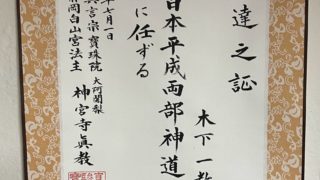 達之証
木下一
日本平成両部神道
に任ずる
年七月一日
眞言宗寳珠院 大阿闍梨
岡白山宮法主 神宮寺眞教